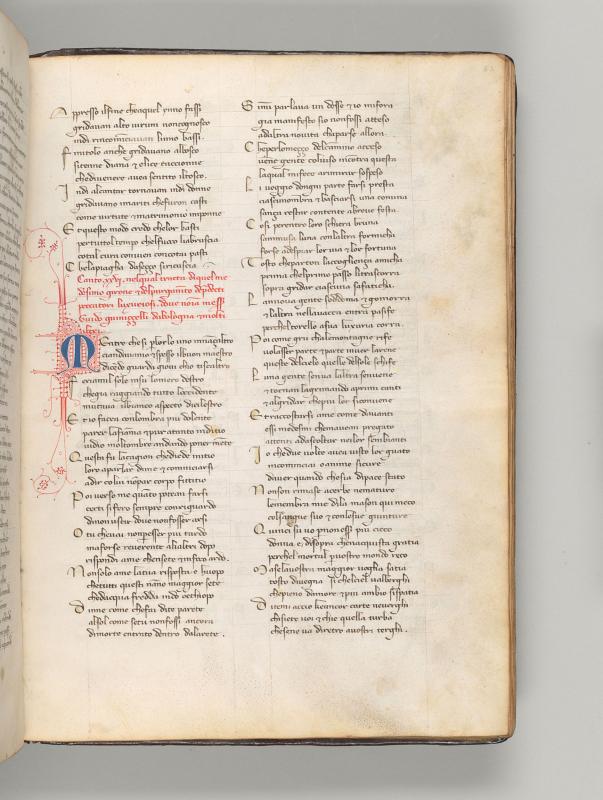 Appresso ilfine cheaquel ynno fassi
gridauan alto uirum noncognosco
indi rincominciauan limno bassi
Finitolo anche gridauano albosco
sitenne diana & elice caccionne
chediuenere auea sentito iltosco
Indi alcantar tornauan indi donne
gridauano imariti chefuron casti
come uirtute & matrimonio imponne
Et questo modo credo chelor basti
pertuttol tempo chelfuoco liabruscia
cotal cura conuien concotai pasti
Chelapiagha dasezzo siricuscia
Canto xxvi nelqual tratta diquel me
desimo girone & delpurgamento
peccatori luxuriosi doue noia mess
Guido guinizzelli dabologna & molti
altri
MEntre che si per lorlo uno innançi altro
ciandauamo & spesso ilbuon maestro
diceua guardi gioui chio tiscaltro
Feriami lsole insu lomero destro
chegia raggiando tutto loccidente
mutaua inbianco aspecto dicilestro
Et io facea conlombra piu dolente
parer lafiama & pur atanto inditio
uidio moltombre andando poner mente
Questa fu lacagion chediede initio
loro aparlar dime & cominciarsi
adir colui nonpar corpo fittitio
Poi uerso me quanto potean farsi
certi sifero sempre conriguardo
dinonuscir doue nonfosser arsi
O tu cheuai nonperesser piu tardo
maforse reuerente aliàltri dopo
rispondi ame chensete & infoco ardo
Nonsolo ame latua risposta e huopo
chetutti questi nanno maggior sete
chedacqua fredda indo oethiopo
Dinne come chefai dite parete
alsol come setu nonfossi ancora
dimorte entrato dentro dalarete.
Simi parlaua un desse & io mifora
gia manifesto sio nonfossi atteso
adaltra nouita cheparse allora
Cheperlomezzo delcamino acceso
uenne gente coluiso incotra questa
laqual mifece arimirar sospeso
Li ueggio dongni parte farsi presta
ciascunombra & basciarsi una conuna
sança restar contente abreue festa
Cosi perentro loro schiera bruna
sammusa luna conlaltra formicha
forse adespiar lor uia & lor fortuna
Tosto cheparton laccoglienza amicha
prima chelprimo passo litrascorra
sopra gridar ciascuna safaticha
Lannoua gente soddoma & gomorra
& laltra nellauacca entra pasife
perchel torello asua luxuria corra
Poi come gru chalemontagne rife
uolasser parte & parte inuer larene
queste delcielo quelle delsole schife
Luna gente senua laltra senuiene
& tornan lagrimando aprimi canti
& algridar chepiu lor siconuiene
Et raccostarsi ame come dauanti
essi medesmi chemauean pregato
attenti adascoltar neilor sembianti
Io chedue uolte auea uisto lor grato
incominciai oanime sicure
dauer quando chesia dipace stato
Nonson rimase acerbe nemature
lemembra mie dila mason qui meco
colsangue suo & conlesue giunture
Quinci su uo pernonesser piu cieco
donna e disopra chenacquista gratia
perchel mortal peruostro mondo reco
Maselauostra maggior uoglia satia
tosto diuegna si chelciel ualberghi
chepieno damore & piu ambio sispatia
Ditemi accio keancor carte neuerghi
chisiete uoi & chie quella turba
chesene ua diretro auostri terghi.